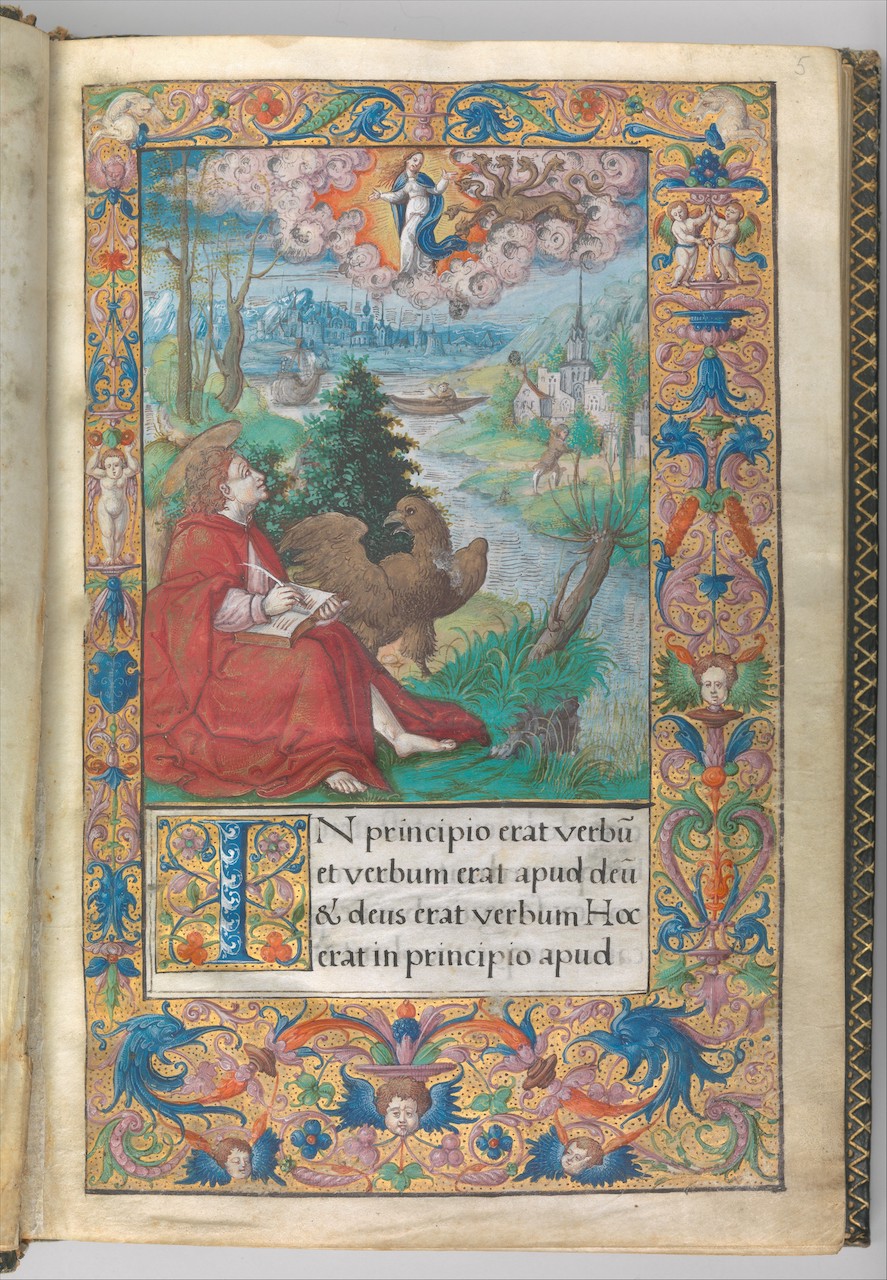 5
IN principio erat verbū
et verbum erat apud deū
& deus erat verbum Hoc
erat in principio apud